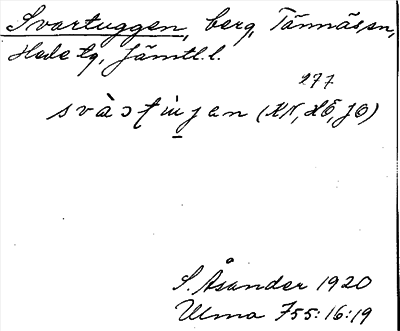 Svartuggen, berg, Tännäs, sn,
Hede tg, Jämtl. l.
277
(KK, HÖ, JO)
S. Åsander 1920
Ulma 755:16:19